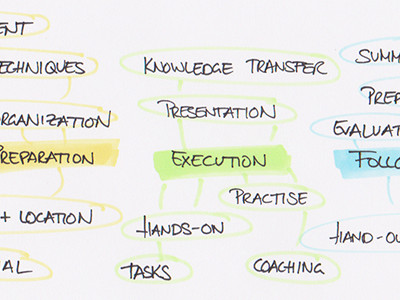 ENT
ECHNIQUES
RGANIZATION
REPARATION
+ LOCATION
AL
KNOWLEDGE TRANSFER
PRESENTATION
EXECUTION
PRACTISE
HANDS-ON
TASKS
COACHING
SUMM
PREP
EVALUAT
FOLLO
HAND-OU